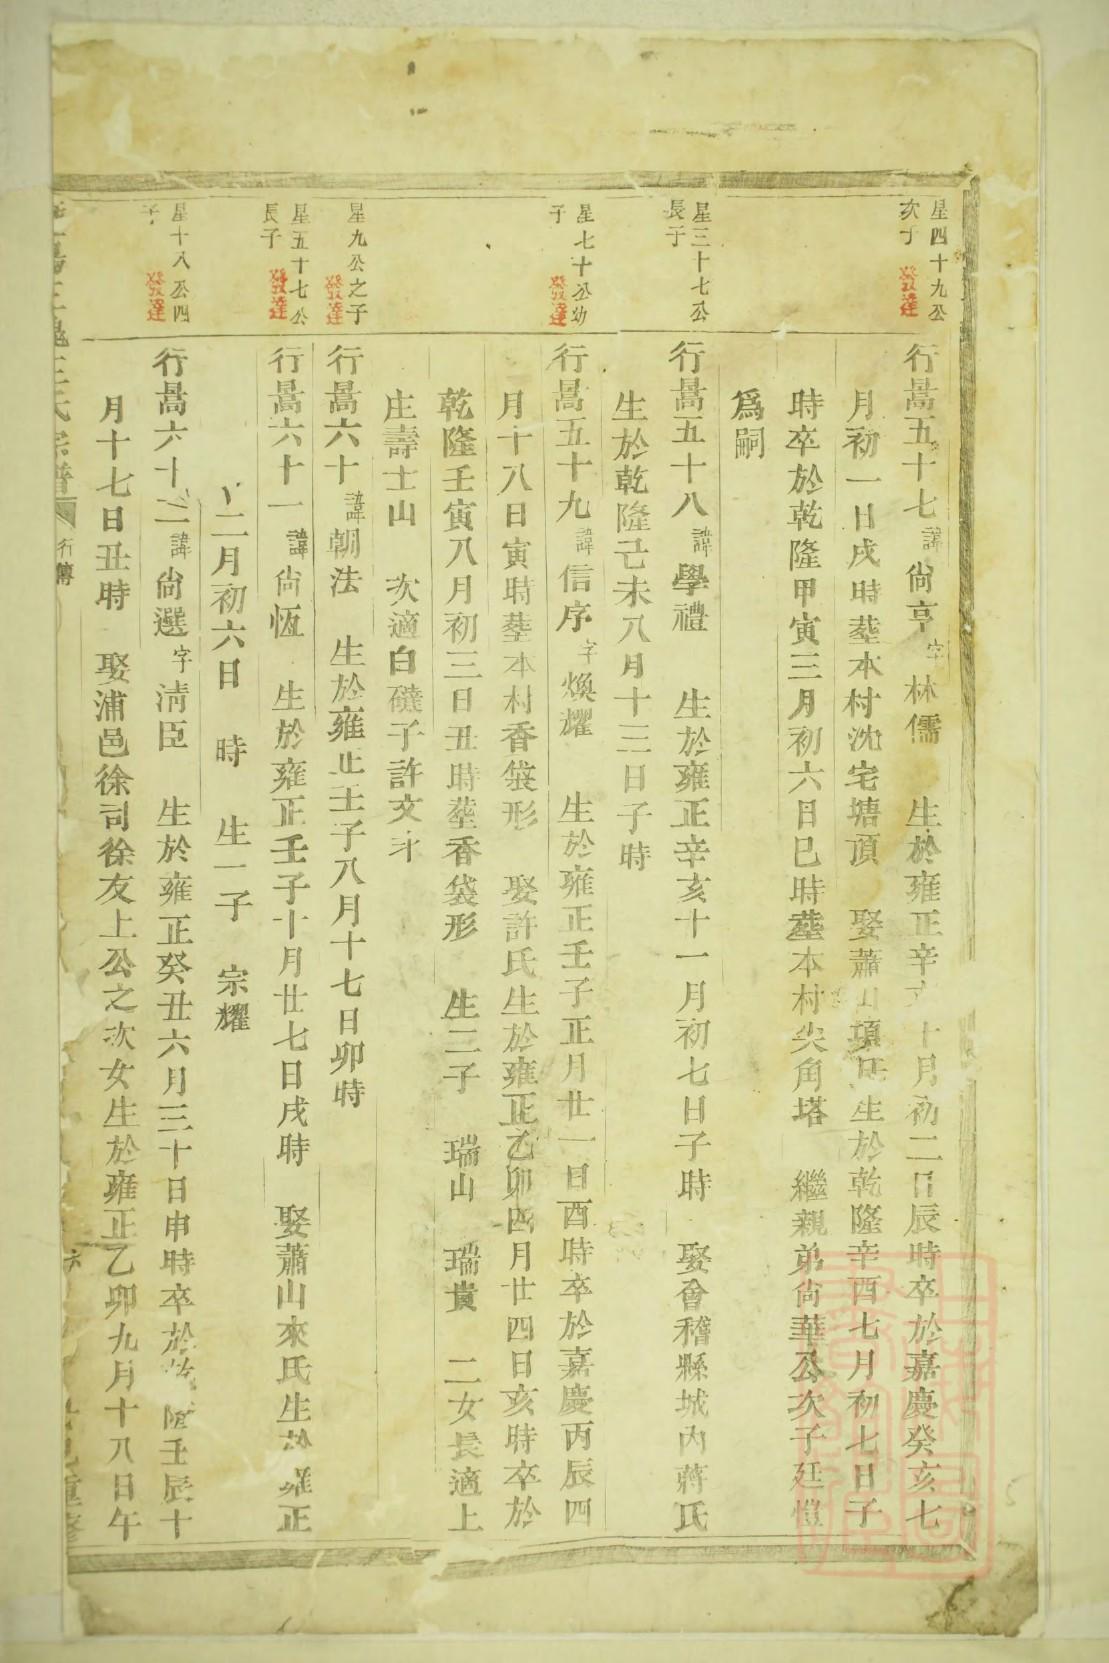 星四十九公
次子 發達
行暠五十七 諱尙亨 字林儒 生於雍正辛 十月初二日辰時卒於嘉慶癸亥七
月初一日戌時塟本村沈宅塘頂 娶蕭山項氏生於乾隆辛酉七月初七日子
時卒於乾隆甲寅三月初六日巳時塟本村尖角塔 繼親弟尙華公次子廷愷
爲嗣
星三十七公
長子
行暠五十八 諱學禮 生於雍正辛亥十一月初七日子時 娶會稽縣城內蔣氏
生於乾隆己未八月十三日子時
星七十公幼
子 發達
行暠五十九 諱信序 字煥耀 生於雍正壬子正月廿一日酉時卒於嘉慶丙辰四
月十八日寅時塟本村香袋形 娶許氏生於雍正乙卯四月廿四日亥時卒於
乾隆壬寅八月初三日丑時塟香袋形 生二子 瑞山 瑞貴 二女長適上
庄壽士山 次適白礶子許文才
星九公之子
發達
行暠六十 諱朝法 生於雍正壬子八月十七日卯時
星五十七公
長子 發達
行暠六十一 諱尙恆 生於雍正壬子十月廿七日戌時 娶蕭山來氏生於雍正
二月初六日 時 生一子 宗耀
星十八公四
子 發達
行暠六十二 諱尙選 字淸臣 生於雍正癸丑六月三十日申時卒於乾隆壬辰十
月十七日丑時 娶浦邑徐司徐友上公之次女生於雍正乙卯九月十八日午
王氏宗譜 行傳 六 重修